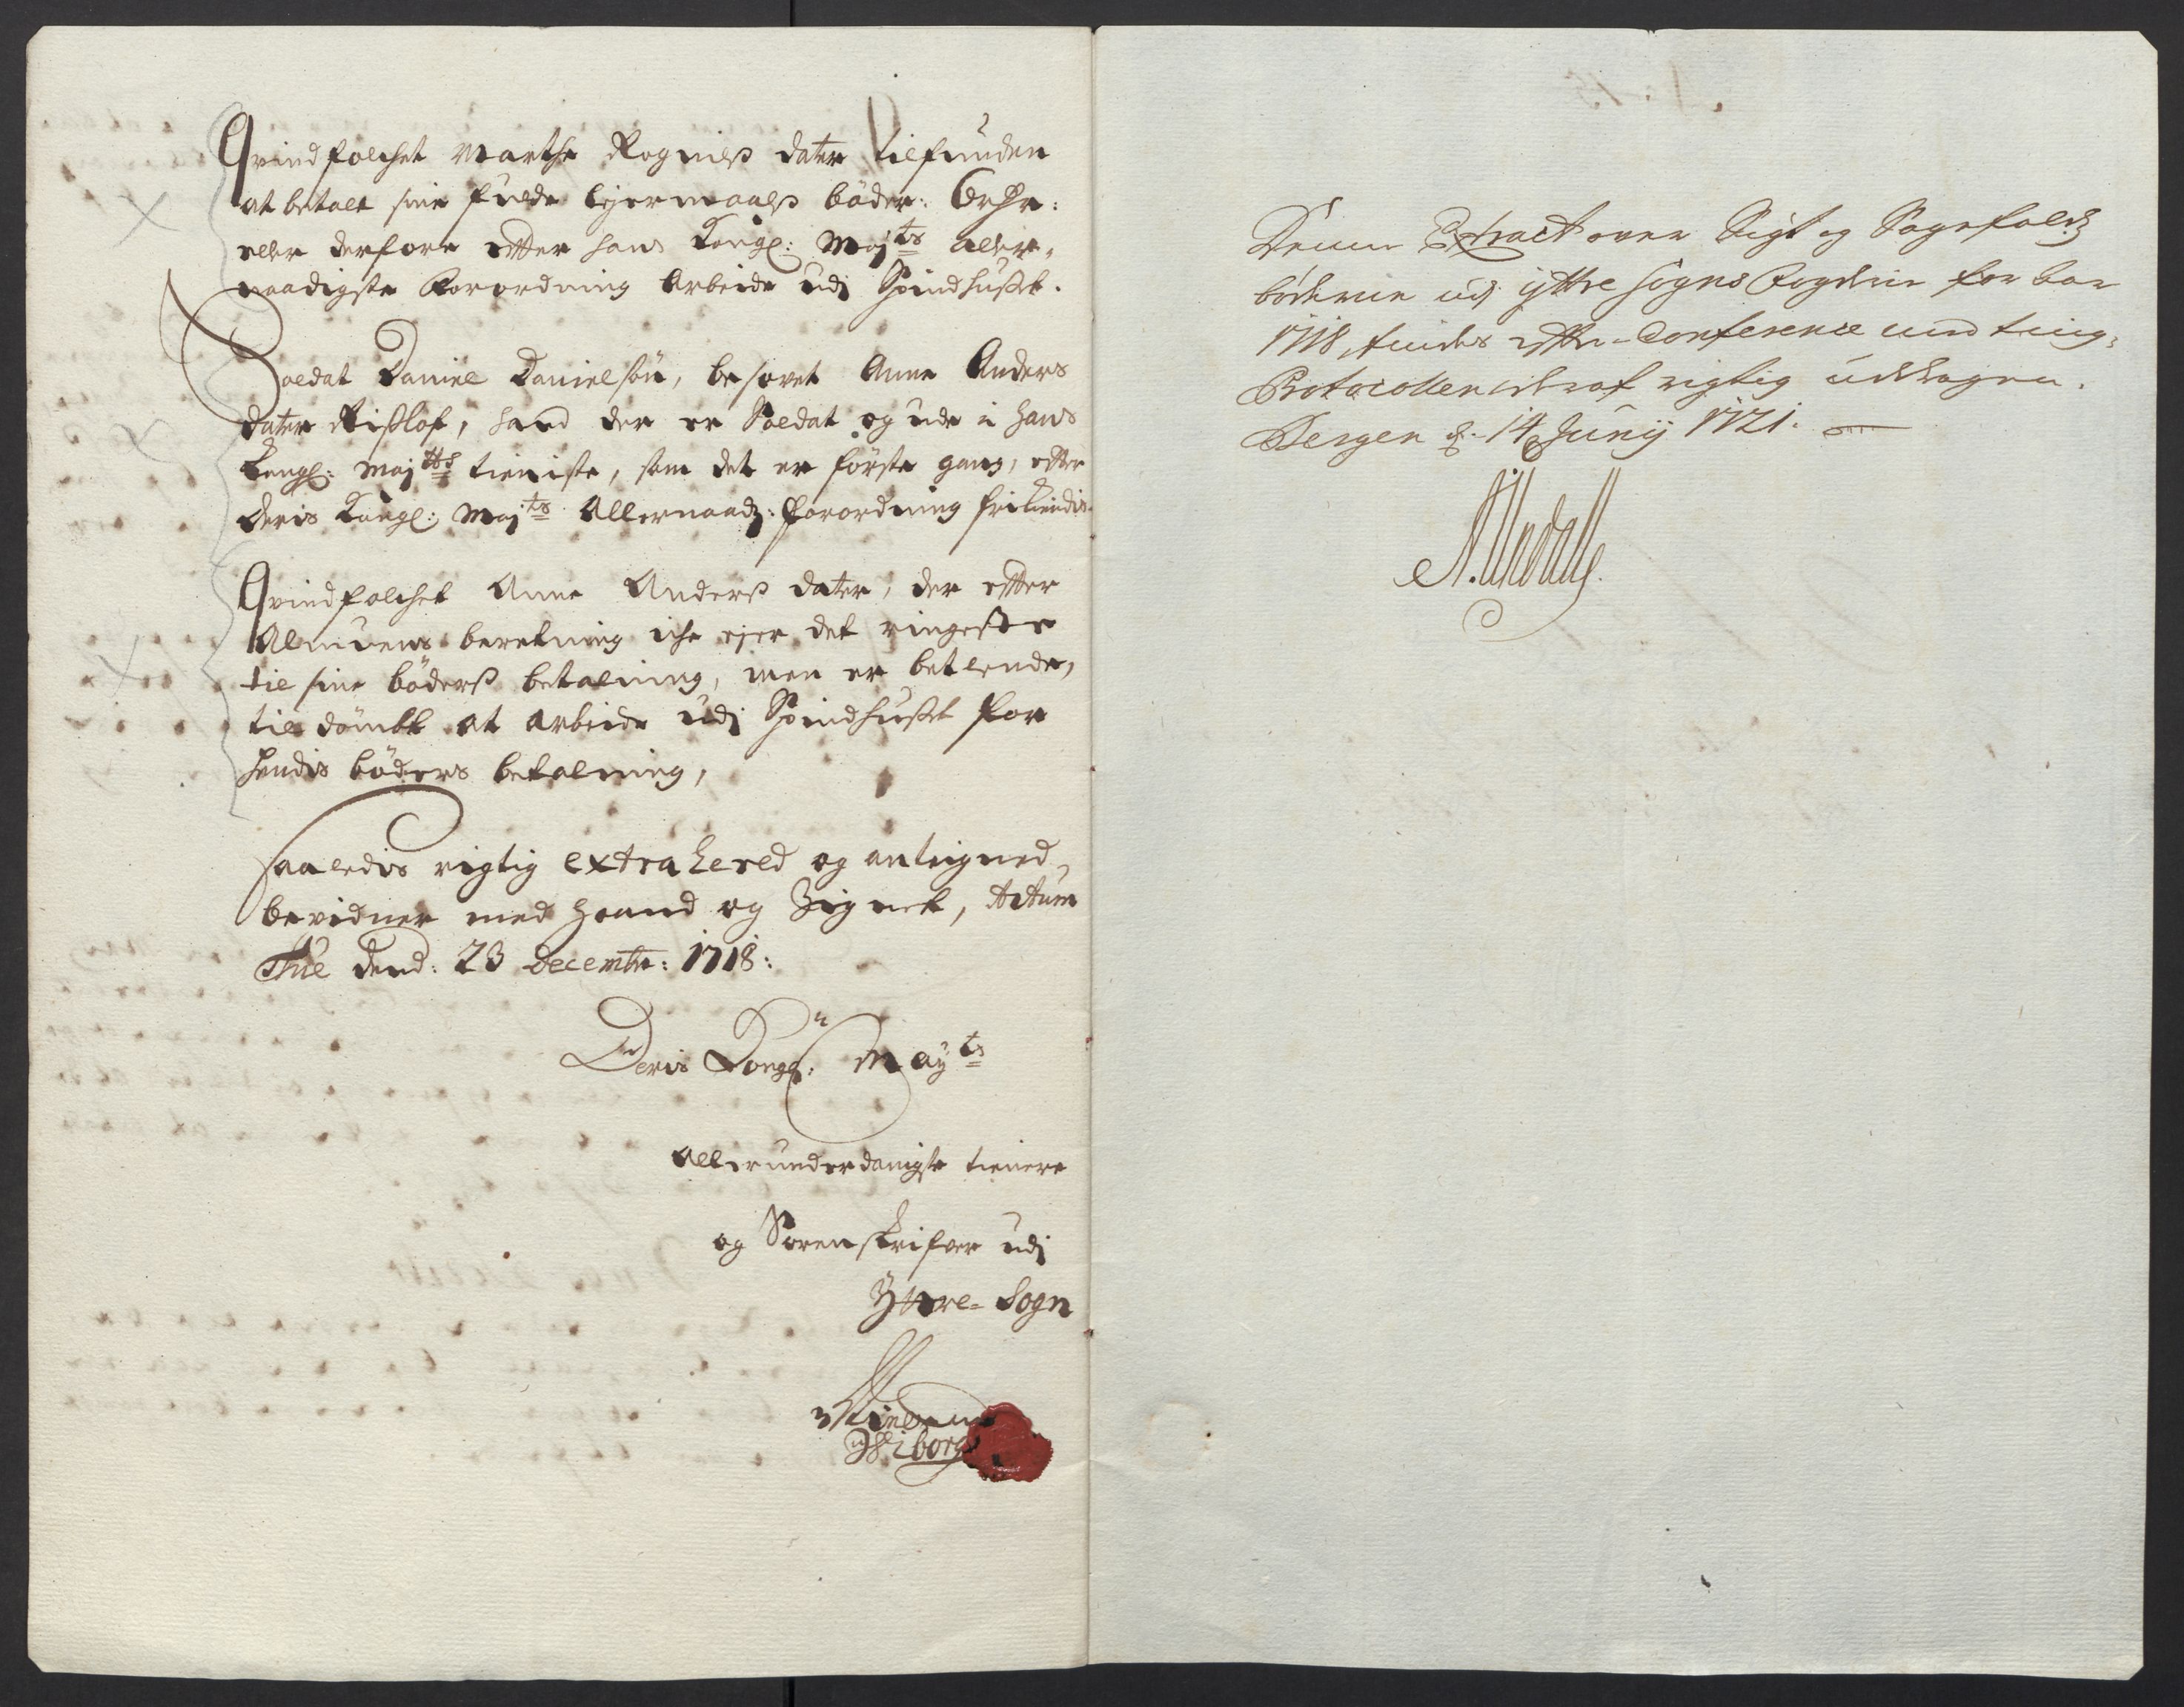 Qvindfolchet Marthe Rognils dater tilfunden
at betale sine fulde leyermaals böder:
eller derfore efter hans Kongl: Majts aller-
naadigste Forordning Arbeide udj Spindhuset.
Soldat Daniel Danielsön, besovet Anne Anders
dater Risløf, hand der er Soldat og ude i hans
Kongl: Majtts tieniste, som det er förste gang, efter
Deris Kongl: Majts Allernaadz: Forordning frikiendis.
Qvindfolchet Anne Anders dater, der efter
Almuens beretning iche ejer det ringeste
til sine böders betalning, men er betlende,
til dömbt at arbeide udj Spindhuset for
hendis böders betalning,
Saaledis rigtig extraHered og anteigned,
bevidner med Haand og Zignet, Actum
Tue dend: 23 Decembr: 1718:
Deris Kongl: Mayts
Allerunderdanigste tienere
og Sorenskrifver udj
Yttre-Sogn
Nielsen
Wiborg
Denne Extract over Sigt og Sagefalds
böderne udj yttre Sogns Fogderie for Aar
1718, findes efter Conference med ting-
Protocollen deraf rigtig uddragen.
Bergen d. 14 Junij 1721.
A. Undall